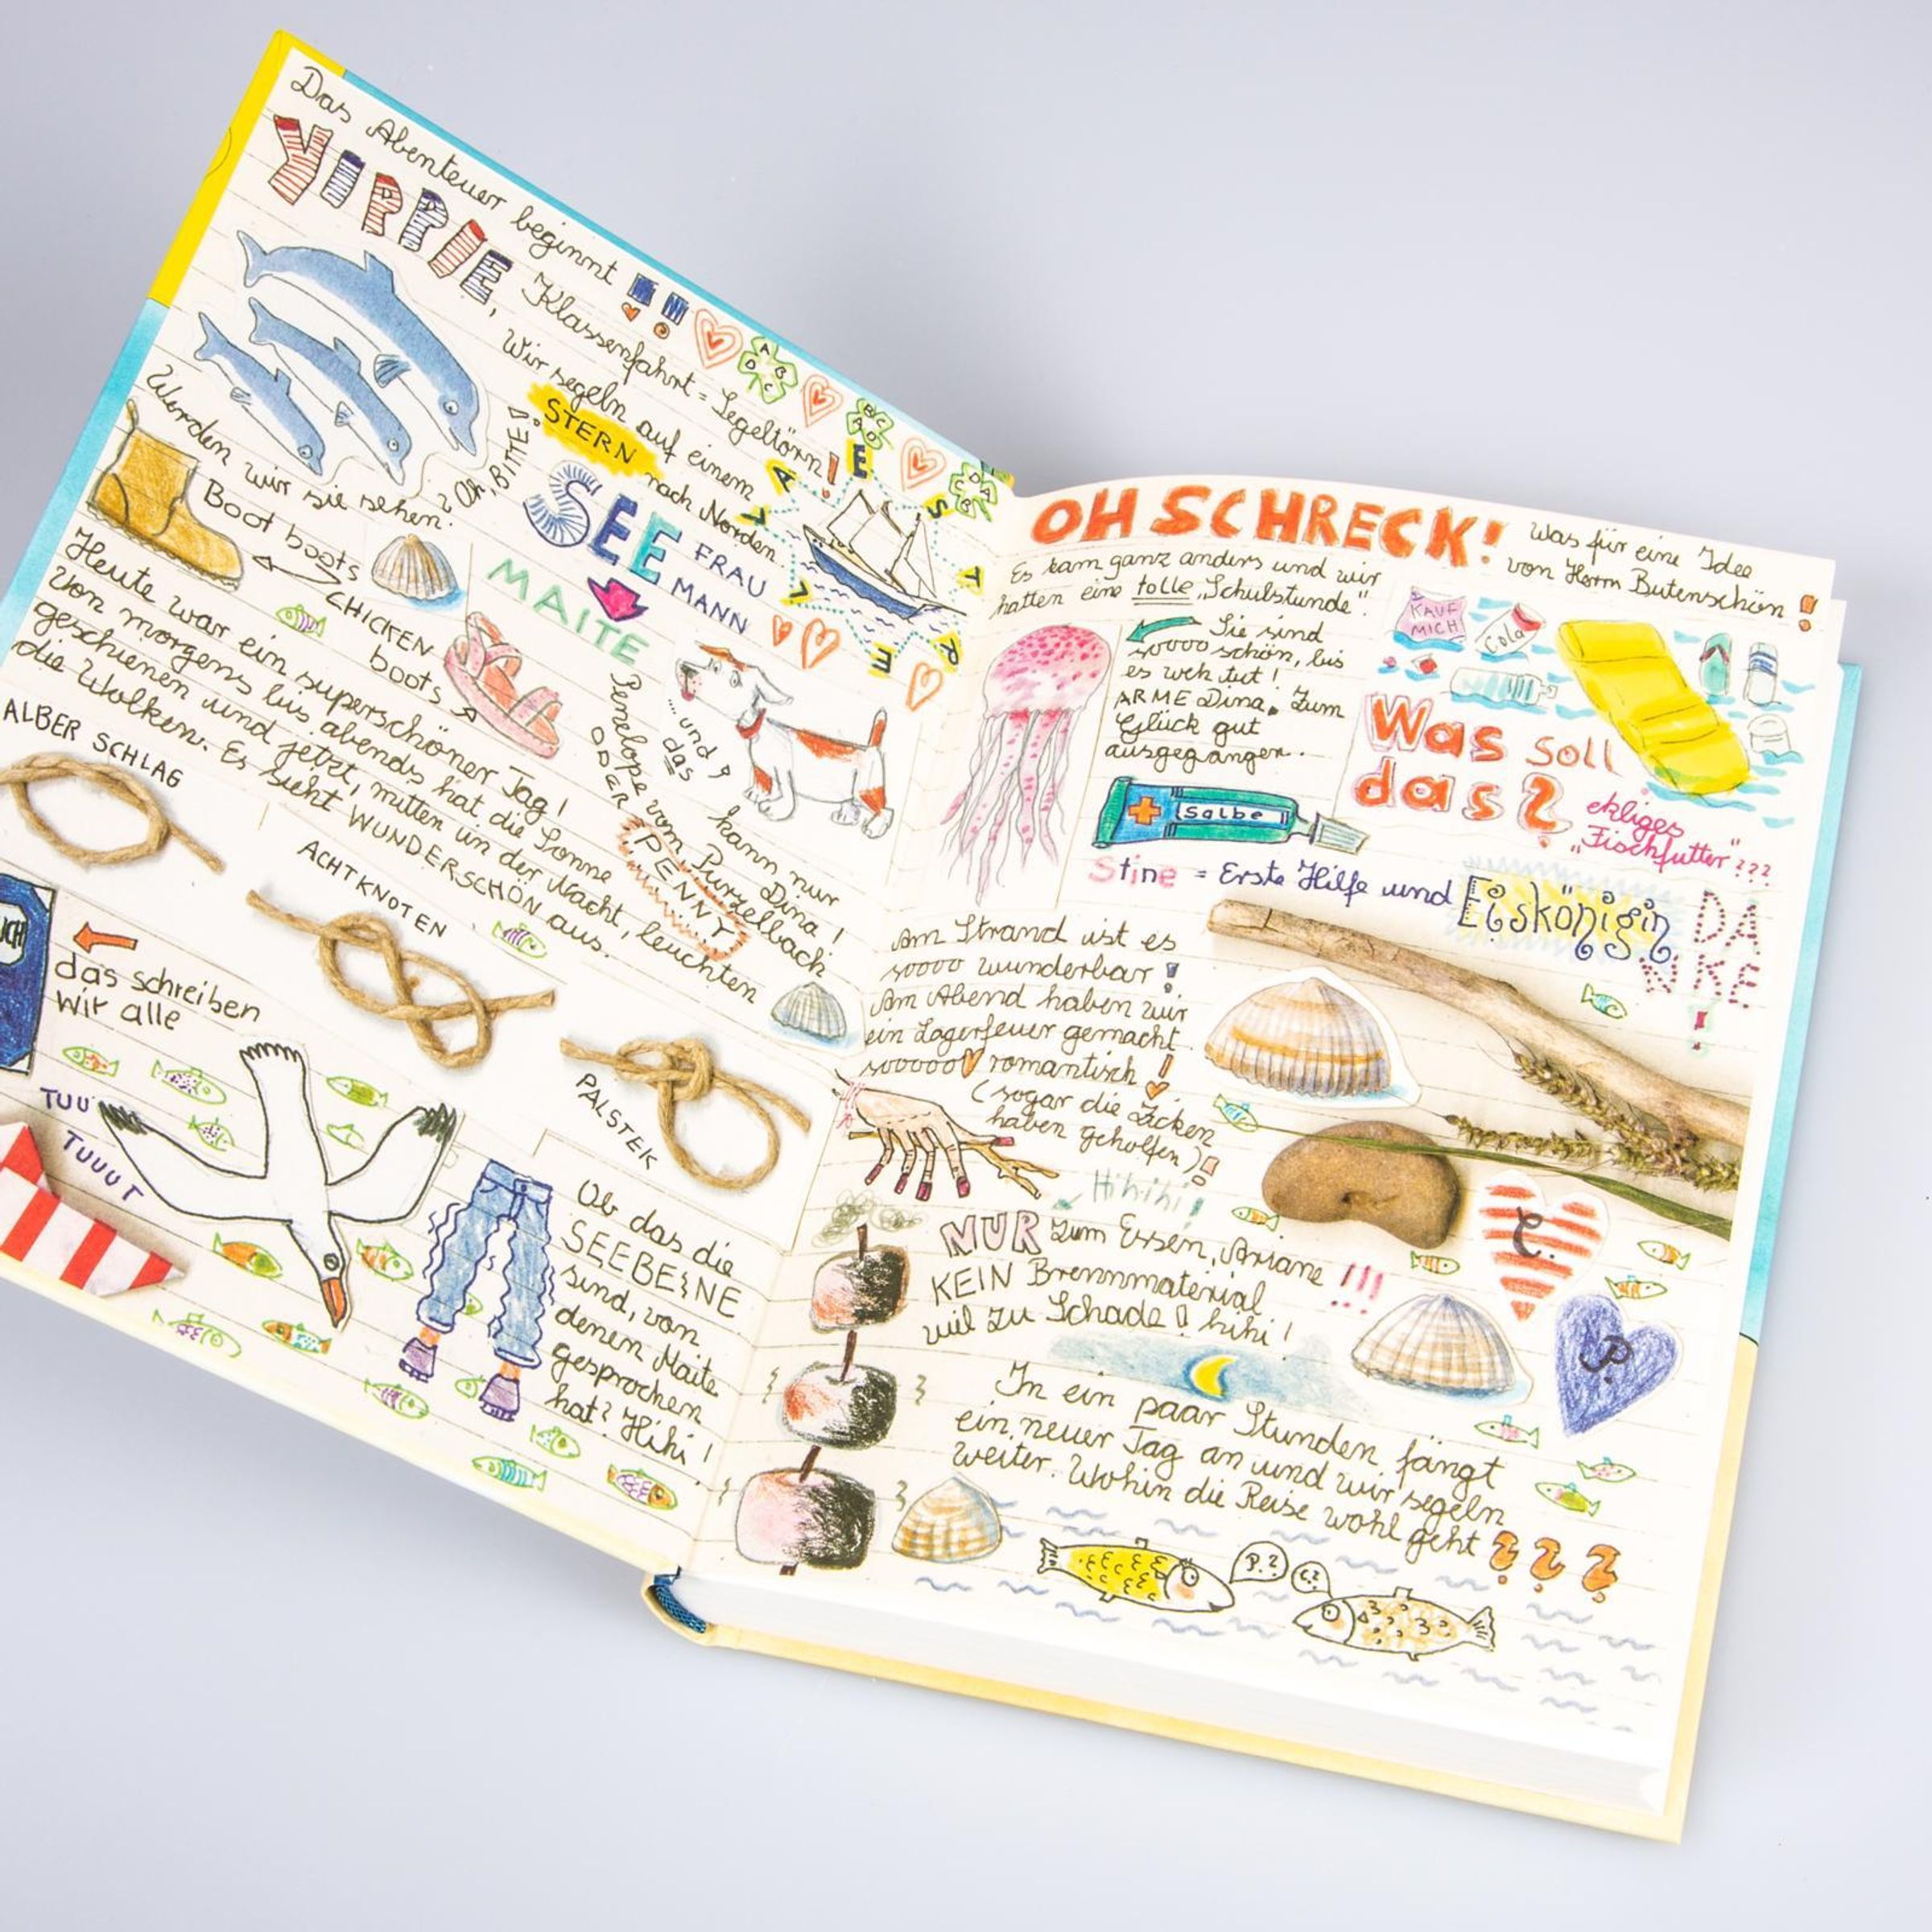 Das Abenteuer beginnt !!
YIPPIE,
Klassenfahrt = Segeltörn!
Wir segeln auf einem
STERN nach Norden
Werden wir sie sehen? Oh, BITTE!
Boot boots
CHICKEN
boots
SEE FRAU
MANN
MAITE
Heute war ein superschöner Tag!
Von morgens bis abends hat die Sonne
geschienen und jetzt, mitten in der Nacht, leuchten
die Wolken. Es sieht WUNDERSCHÖN aus.
...und
das
kann nur
Dina!
Penelope vom Purzelbach
ODER
PENNY
ALBER SCHLAG
ACHTKNOTEN
PALSTEK
UCH
das schreiben
wir alle
TUU
TUUUT
Ob das die
SEEBEINE
sind, von
denen Maite
gesprochen
hat? Hihi!
OH SCHRECK!
Was für eine Idee
von Herrn Butenschön!
Es kam ganz anders und wir
hatten eine tolle „Schulstunde".
Sie sind
soooo schön, bis
es weh tut!
ARME Dina. Zum
Glück gut
ausgegangen.
KAUF
MICH
Cola
Was soll
das?
ekliges
„Fischfutter"???
Salbe
Stine = Erste Hilfe und Eiskönigin
DA
NKE
!
Am Strand ist es
soooo wunderbar!
Am Abend haben wir
ein Lagerfeuer gemacht.
sooooo romantisch!
(sogar die Zicken
haben geholfen)!
Hihihi!
NUR zum Essen, Ariane!!!
KEIN Brennmaterial
viel zu Schade! hihi!
C.
P.
In ein paar Stunden fängt
ein neuer Tag an und wir segeln
weiter. Wohin die Reise wohl geht???
P.?
C.?